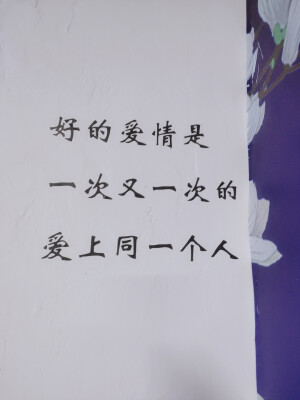 好的爱情是
一次又一次的
爱上同一个人